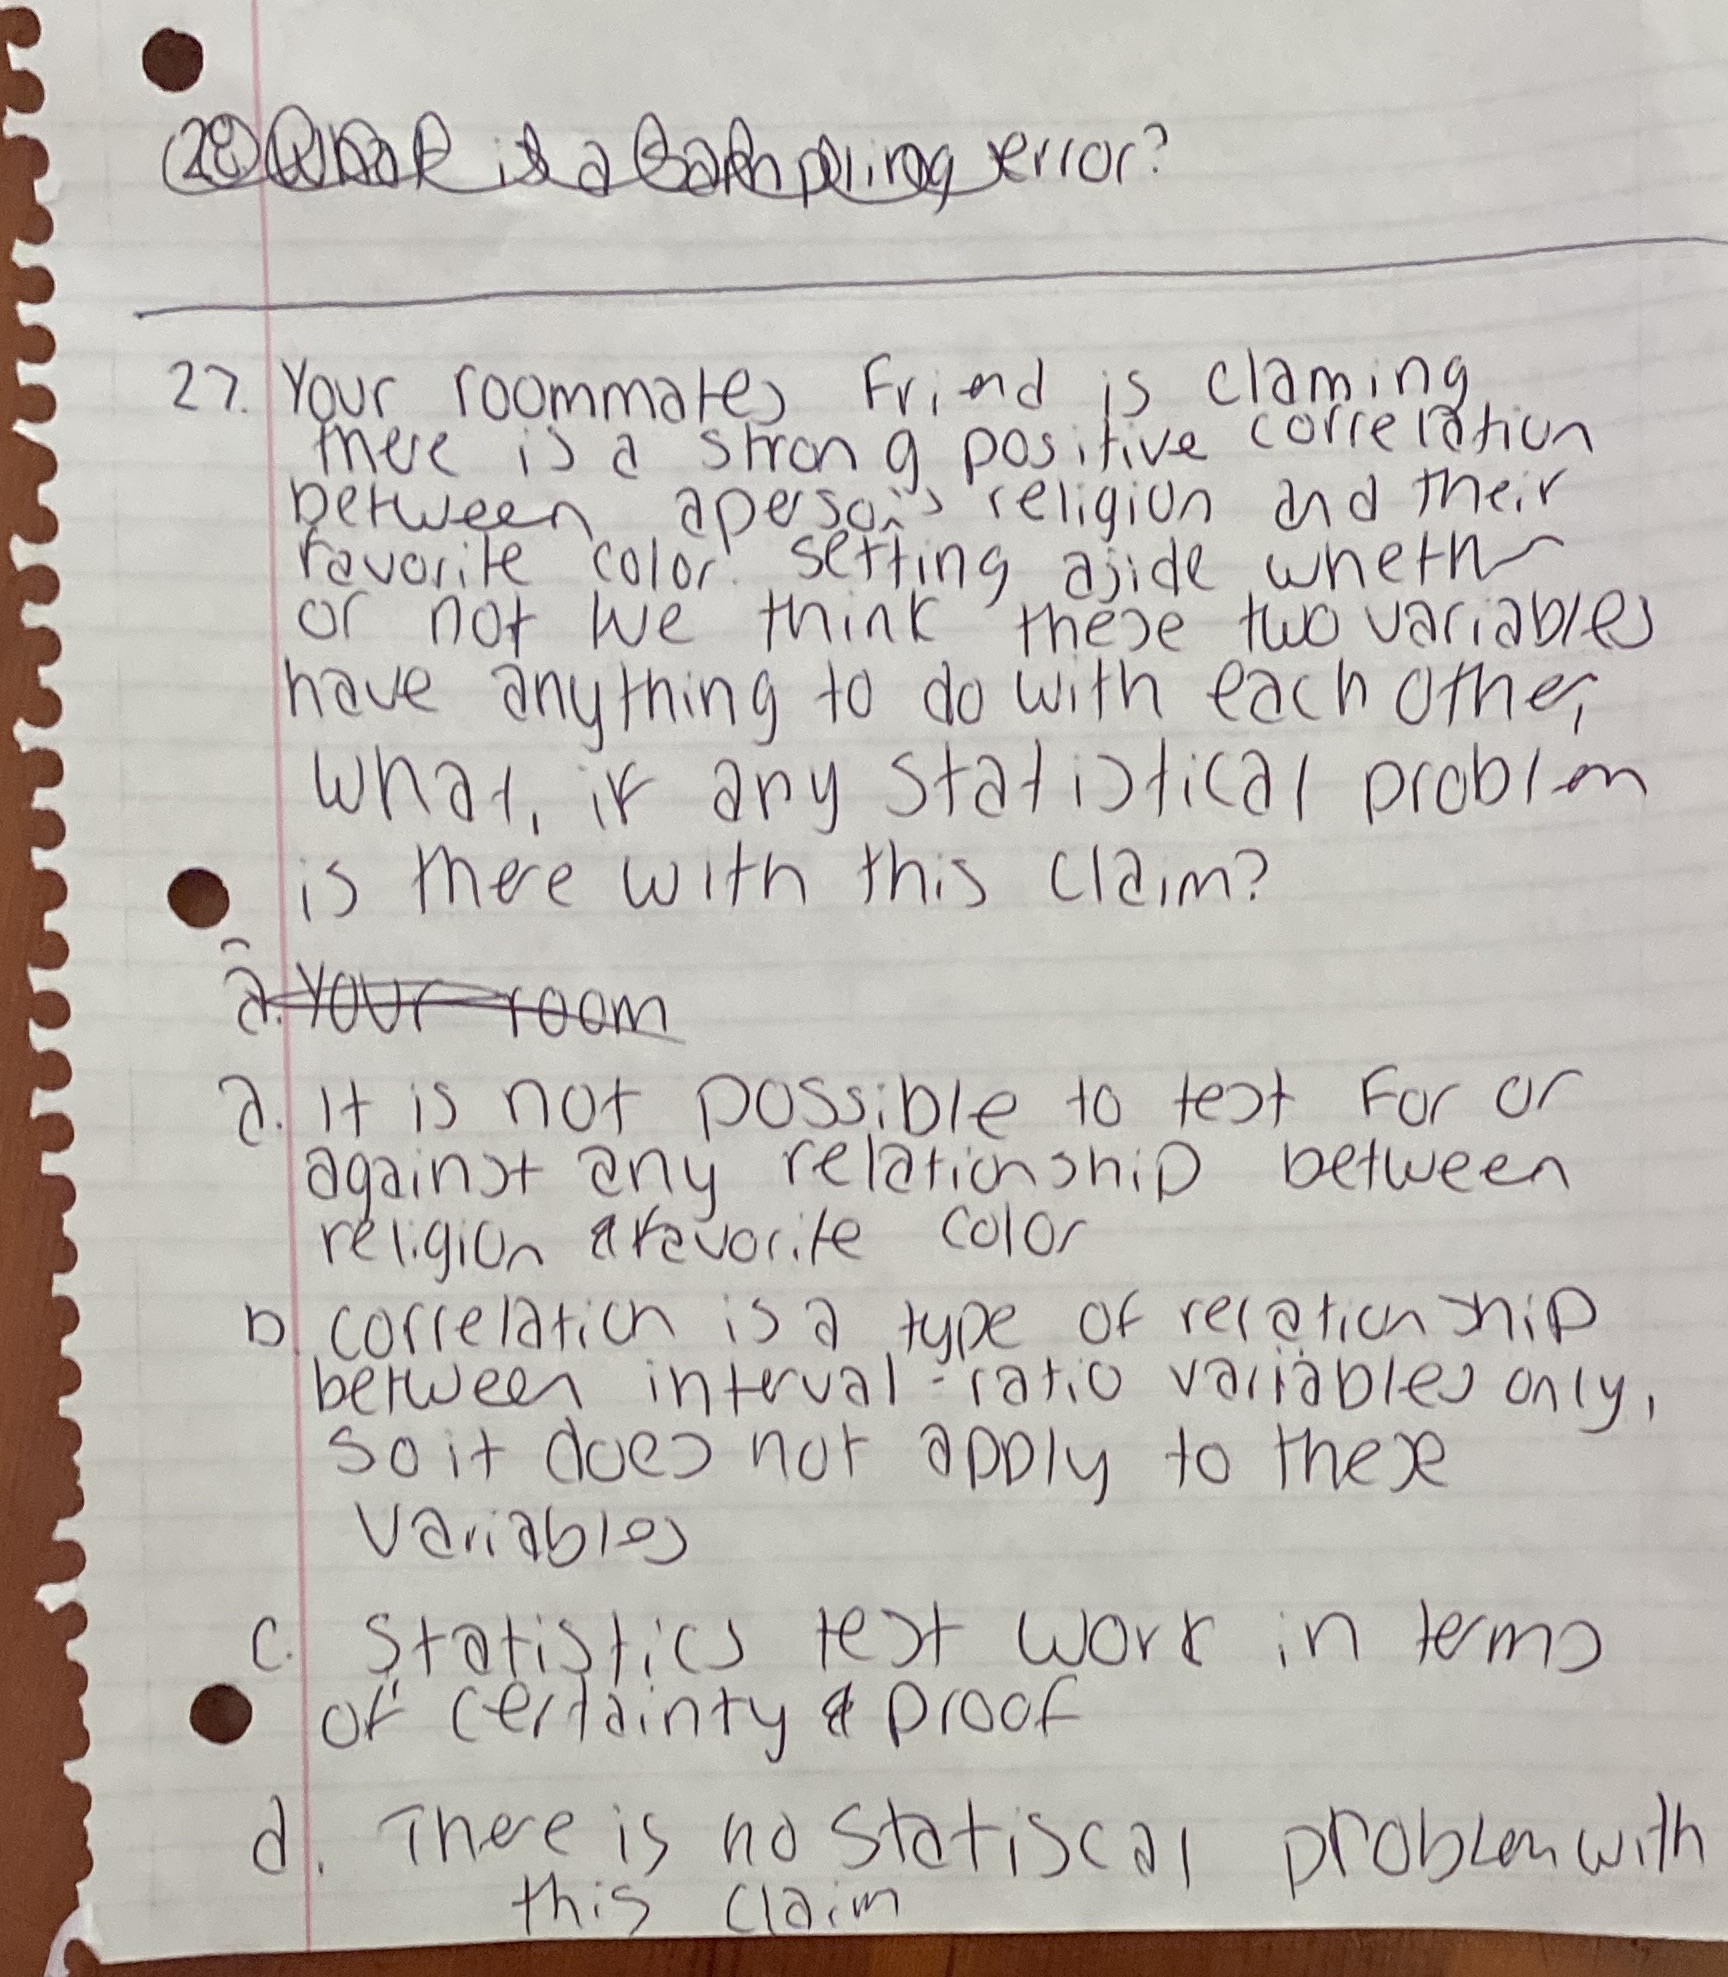 28 What is a Sampling error?
27. Your roommates Friend is claming
there is a strong positive correlation
between a person's religion and their
favorite color. setting aside wheth
or not we think these two variables
have anything to do with each other,
What, if any statistical problem
is there with this claim?
a. Your room
a. It is not possible to test For or
against any relationship between
religion & favorite color
b. correlation is a type of relationship
between interval-ratio variables only,
so it does not apply to these
variables
c. Statistics test work in terms
of certainty & proof
d. There is no Statiscal problem with
this claim